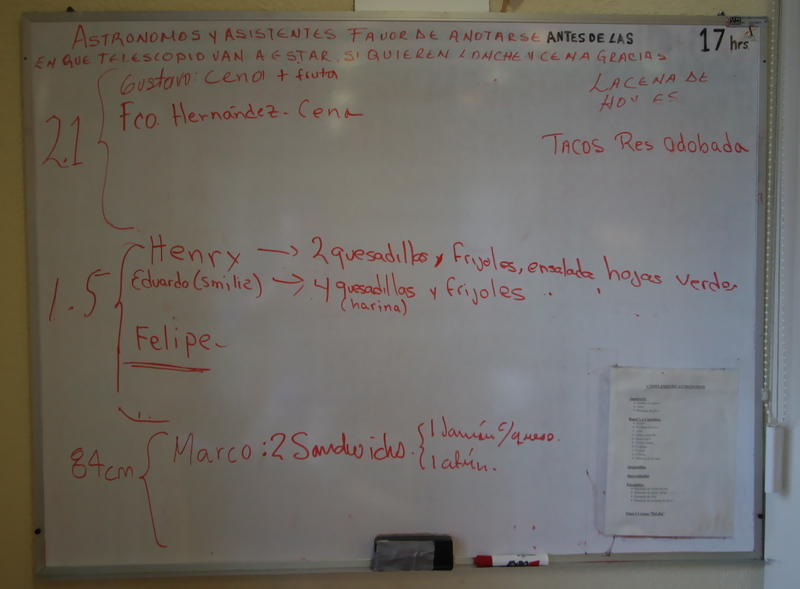 ASTRONOMOS Y ASISTENTES FAVOR DE ANOTARSE ANTES DE LAS 17 hrs
EN QUE TELESCOPIO VAN A ESTAR, SI QUIEREN LONCHE Y CENA GRACIAS
LA CENA DE
HOY ES
TACOS Res adobada
2.1
Gustavo: Cena + fruta
Fco. Hernández - Cena
1.5
Henry → 2 quesadillas y frijoles, ensalada hojas verdes
Eduardo (smilie) → 4 quesadillas y frijoles
(harina)
Felipe -
84cm
Marco: 2 Sandwichs. 1 Jamón c/queso.
1 atún.